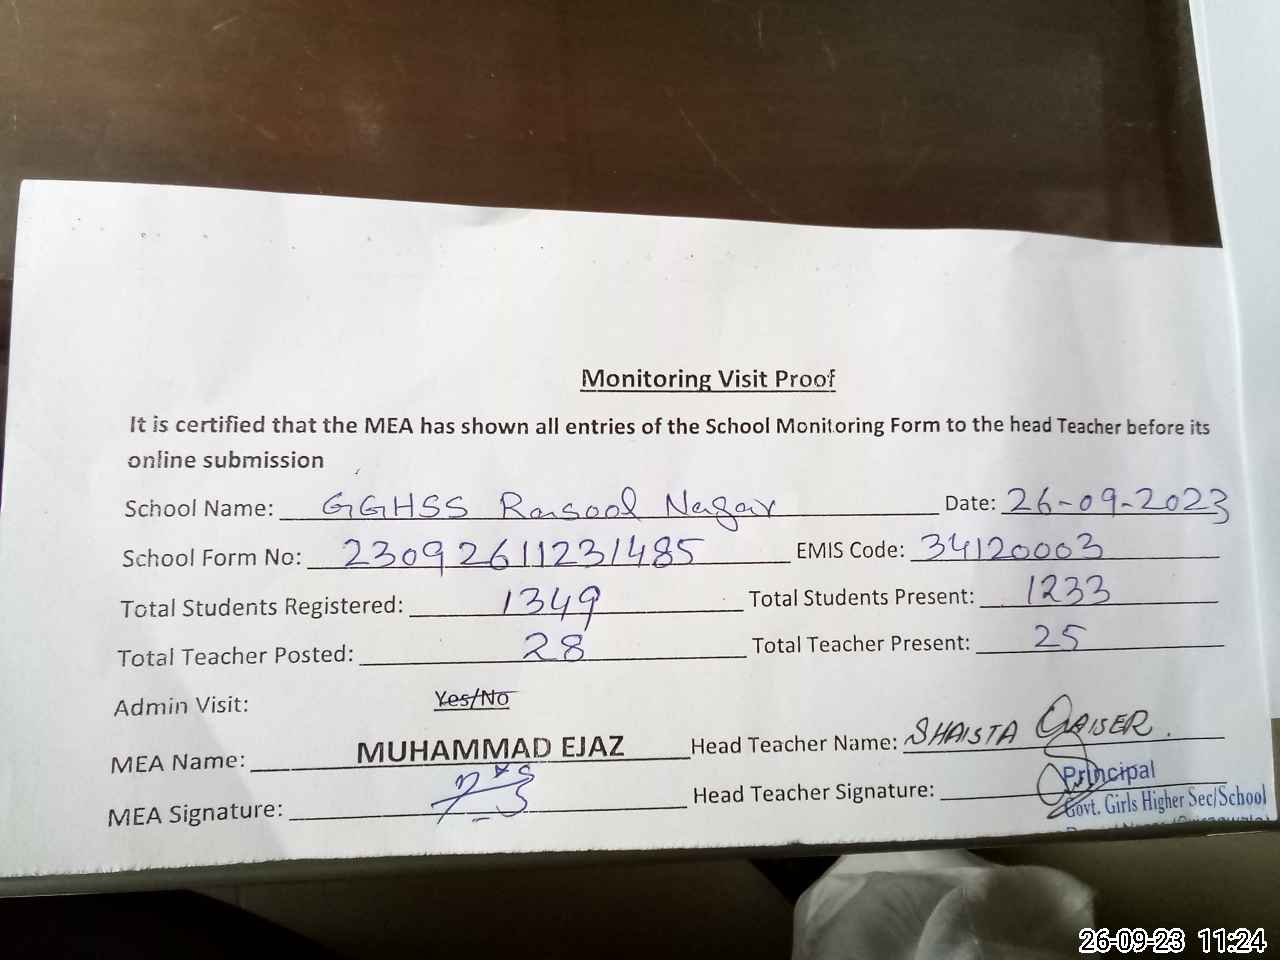 Monitoring Visit Proof
It is certified that the MEA has shown all entries of the School Monitoring Form to the head Teacher before its
online submission
School Name: GGHSS Rasool Nagar Date: 26-09-2023
School Form No: 23092611231485 EMIS Code: 34120003
Total Students Registered: 1349 Total Students Present: 1233
Total Teacher Posted: 28 Total Teacher Present: 25
Admin Visit: Yes/No
MEA Name: MUHAMMAD EJAZ Head Teacher Name: SHAISTA QAISER.
MEA Signature: Head Teacher Signature:
Principal
Govt. Girls Higher Sec/School
26-09-23 11:24